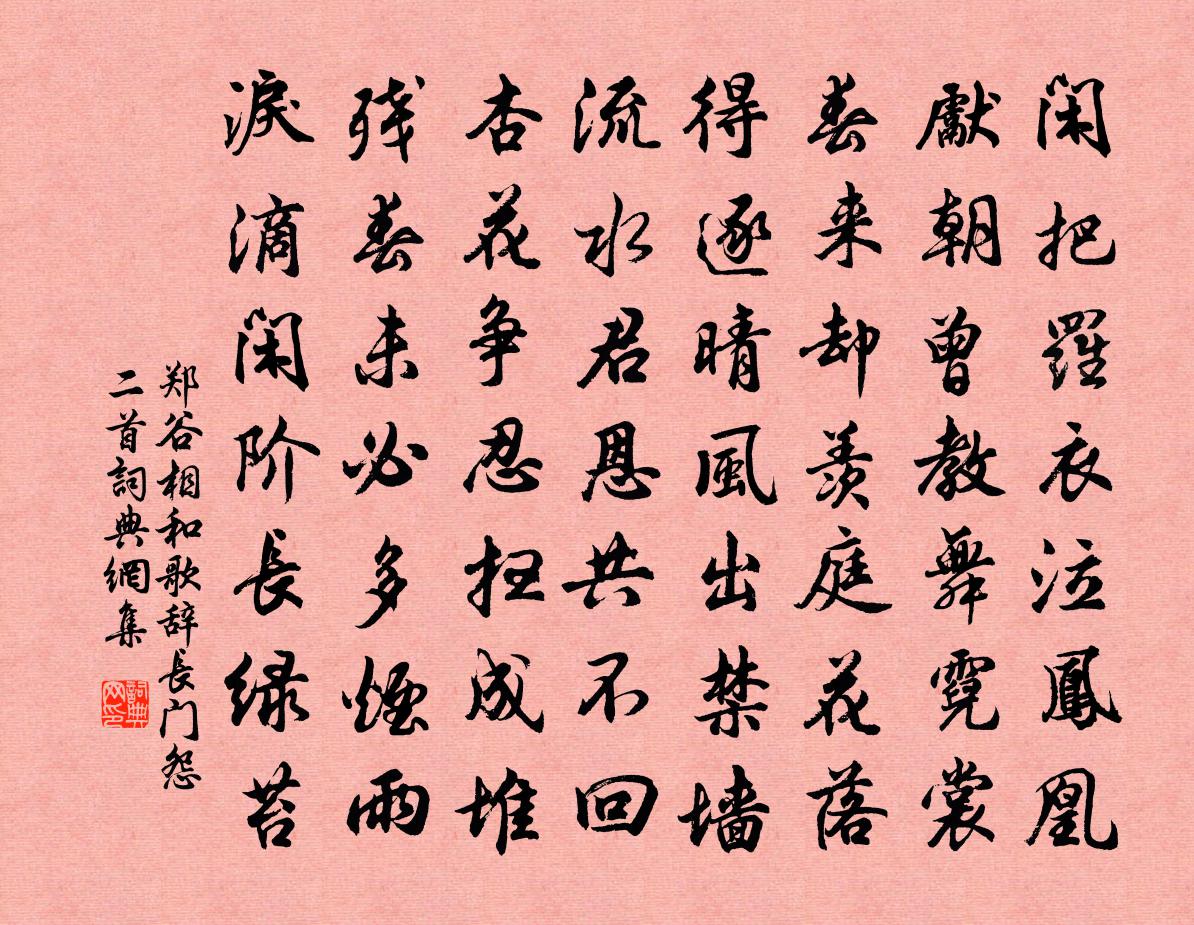 闲把羅衣泣鳳凰
獻朝曾教舞霓裳
春来却羨庭花落
得逐晴風出禁墙
流水君恩共不回
杏花争忍扫成堆
残春未必多煙雨
淚滴闲阶長绿苔
郑谷相和歌辞長门怨
二首詞典網集
詞典网印